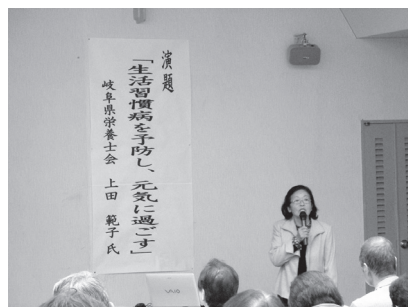 演題
「生活習慣病を予防し、元気に過ごす」
岐阜県栄養士会 上田 範子 氏
VAIO